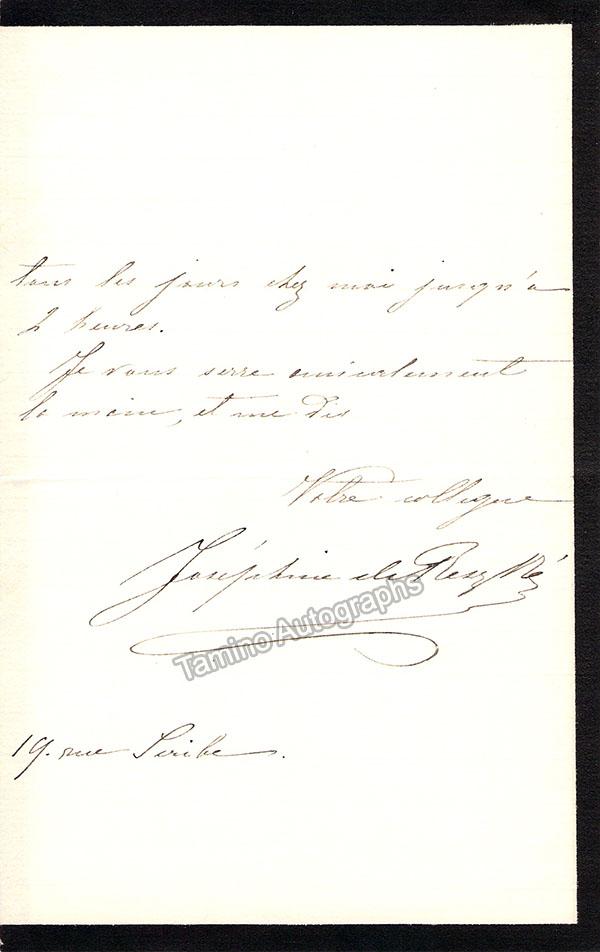 tous les jours chez moi jusqu'à
2 heures.
Je vous serre amicalement
la main, et me dis
Votre collègue
Joséphine de Reszké
Tamino Autographs
19. rue Scribe.